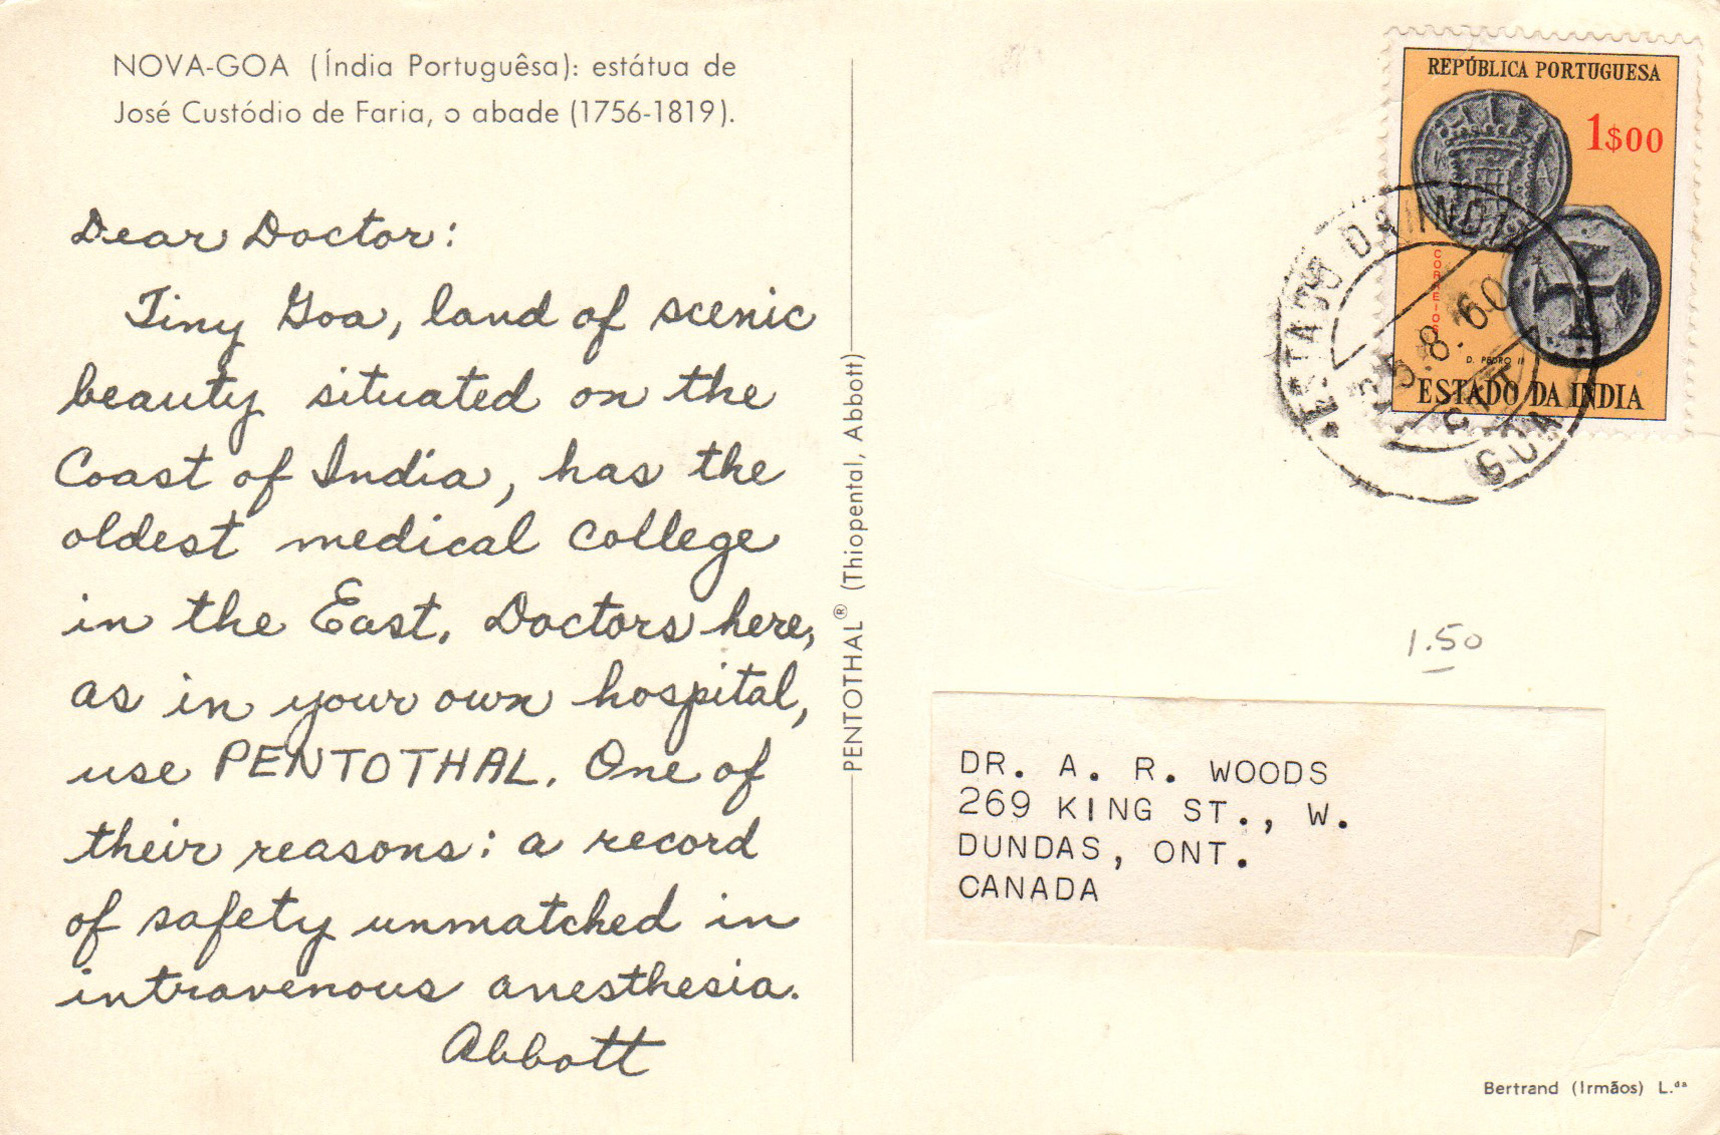 NOVA-GOA (Índia Portuguêsa): estátua de
José Custódio de Faria, o abade (1756-1819).
Dear Doctor:
Tiny Goa, land of scenic
beauty situated on the
Coast of India, has the
oldest medical college
in the East. Doctors here,
as in your own hospital,
use PENTOTHAL. One of
their reasons: a record
of safety unmatched in
intravenous anesthesia.
Abbott
PENTOTHAL® (Thiopental, Abbott)
REPÚBLICA PORTUGUESA
1$00
CORREIOS
D. PEDRO II
ESTADO DA INDIA
ESTADO DA INDIA
5.8.60
GOA
1.50
DR. A. R. WOODS
269 KING ST., W.
DUNDAS, ONT.
CANADA
Bertrand (Irmãos) L.da